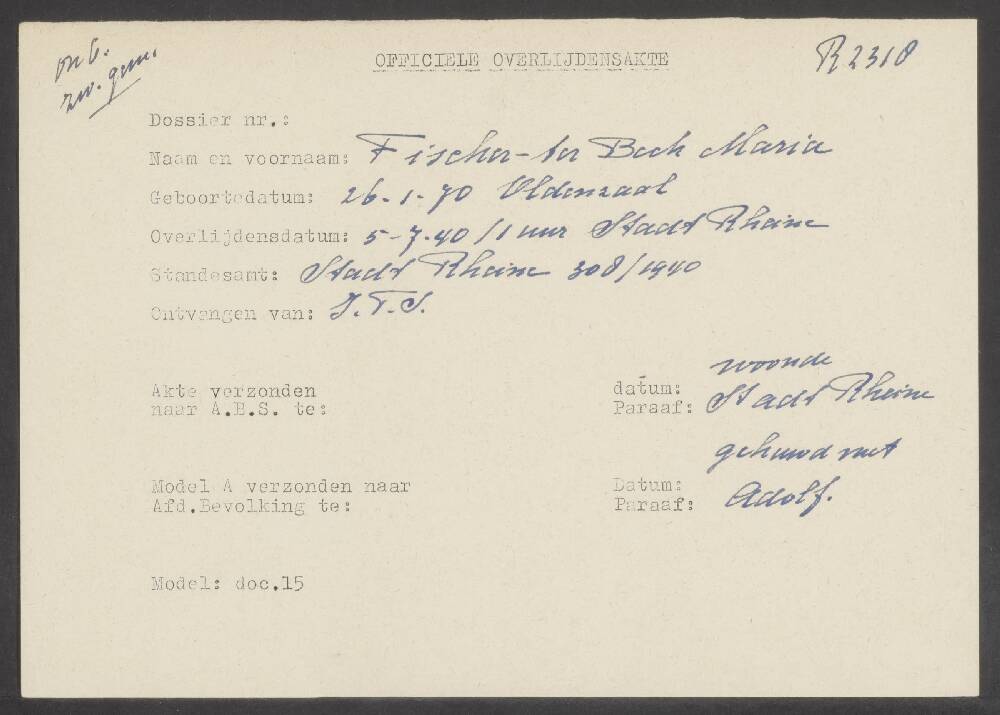 onb.
zw. gem.
OFFICIELE OVERLIJDENSAKTE
R2318
Dossier nr.:
Naam en voornaam: Fischer-ter Beek Maria
Geboortedatum: 26-1-70 Oldenzaal
Overlijdensdatum: 5-7-40 /1 uur Stadt Rheine
Standesamt: Stadt Rheine 308/1940
Ontvangen van: I.T.S.
woonde
Akte verzonden datum: Stadt Rheine
naar A.B.S. te: Paraaf:
gehuwd met
Model A verzonden naar Datum: Adolf.
Afd.Bevolking te: Paraaf:
Model: doc.15